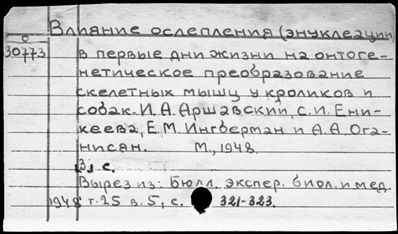 Влияние ослепления (энуклеации)
с
30773
в первые дни жизни на онтоге-
нетическое преобразование
скелетных мышц у кроликов и
собак. И.А. Аршавский, С.И. Ени-
кеева, Е.М. Ингберман и А.А. Ога-
нисян. М., 1948.
3 с.
Вырез из: Бюлл. экспер. биол. и мед.
1948 т. 25 в. 5, с. 321-323.